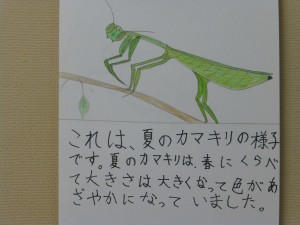 これは、夏のカマキリの様子
です。夏のカマキリは、春にくらべ
て大きさは大きくなって色があ
ざやかになっていました。